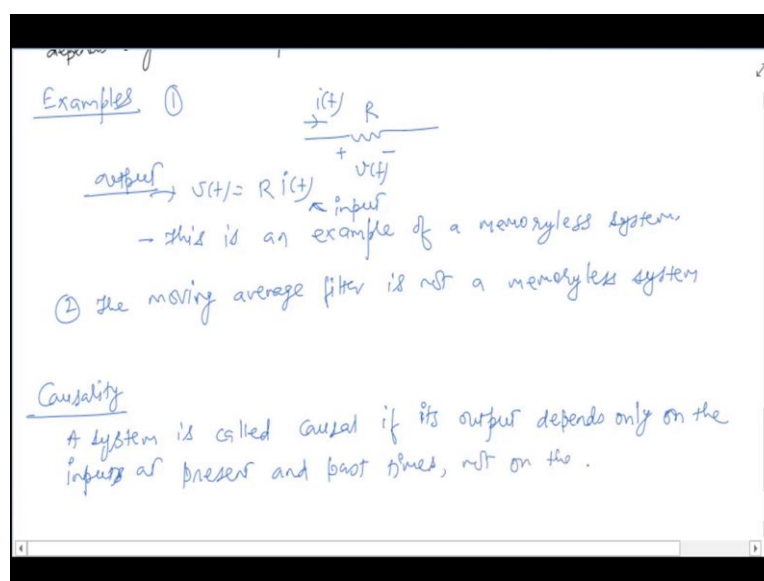 depends
Examples ①
i(t) R
+ v(t) -
output → v(t) = R i(t) ← input
- This is an example of a memoryless system
② The moving average filter is not a memoryless system
Causality
A system is called causal if its output depends only on the
inputs at present and past times, not on the .